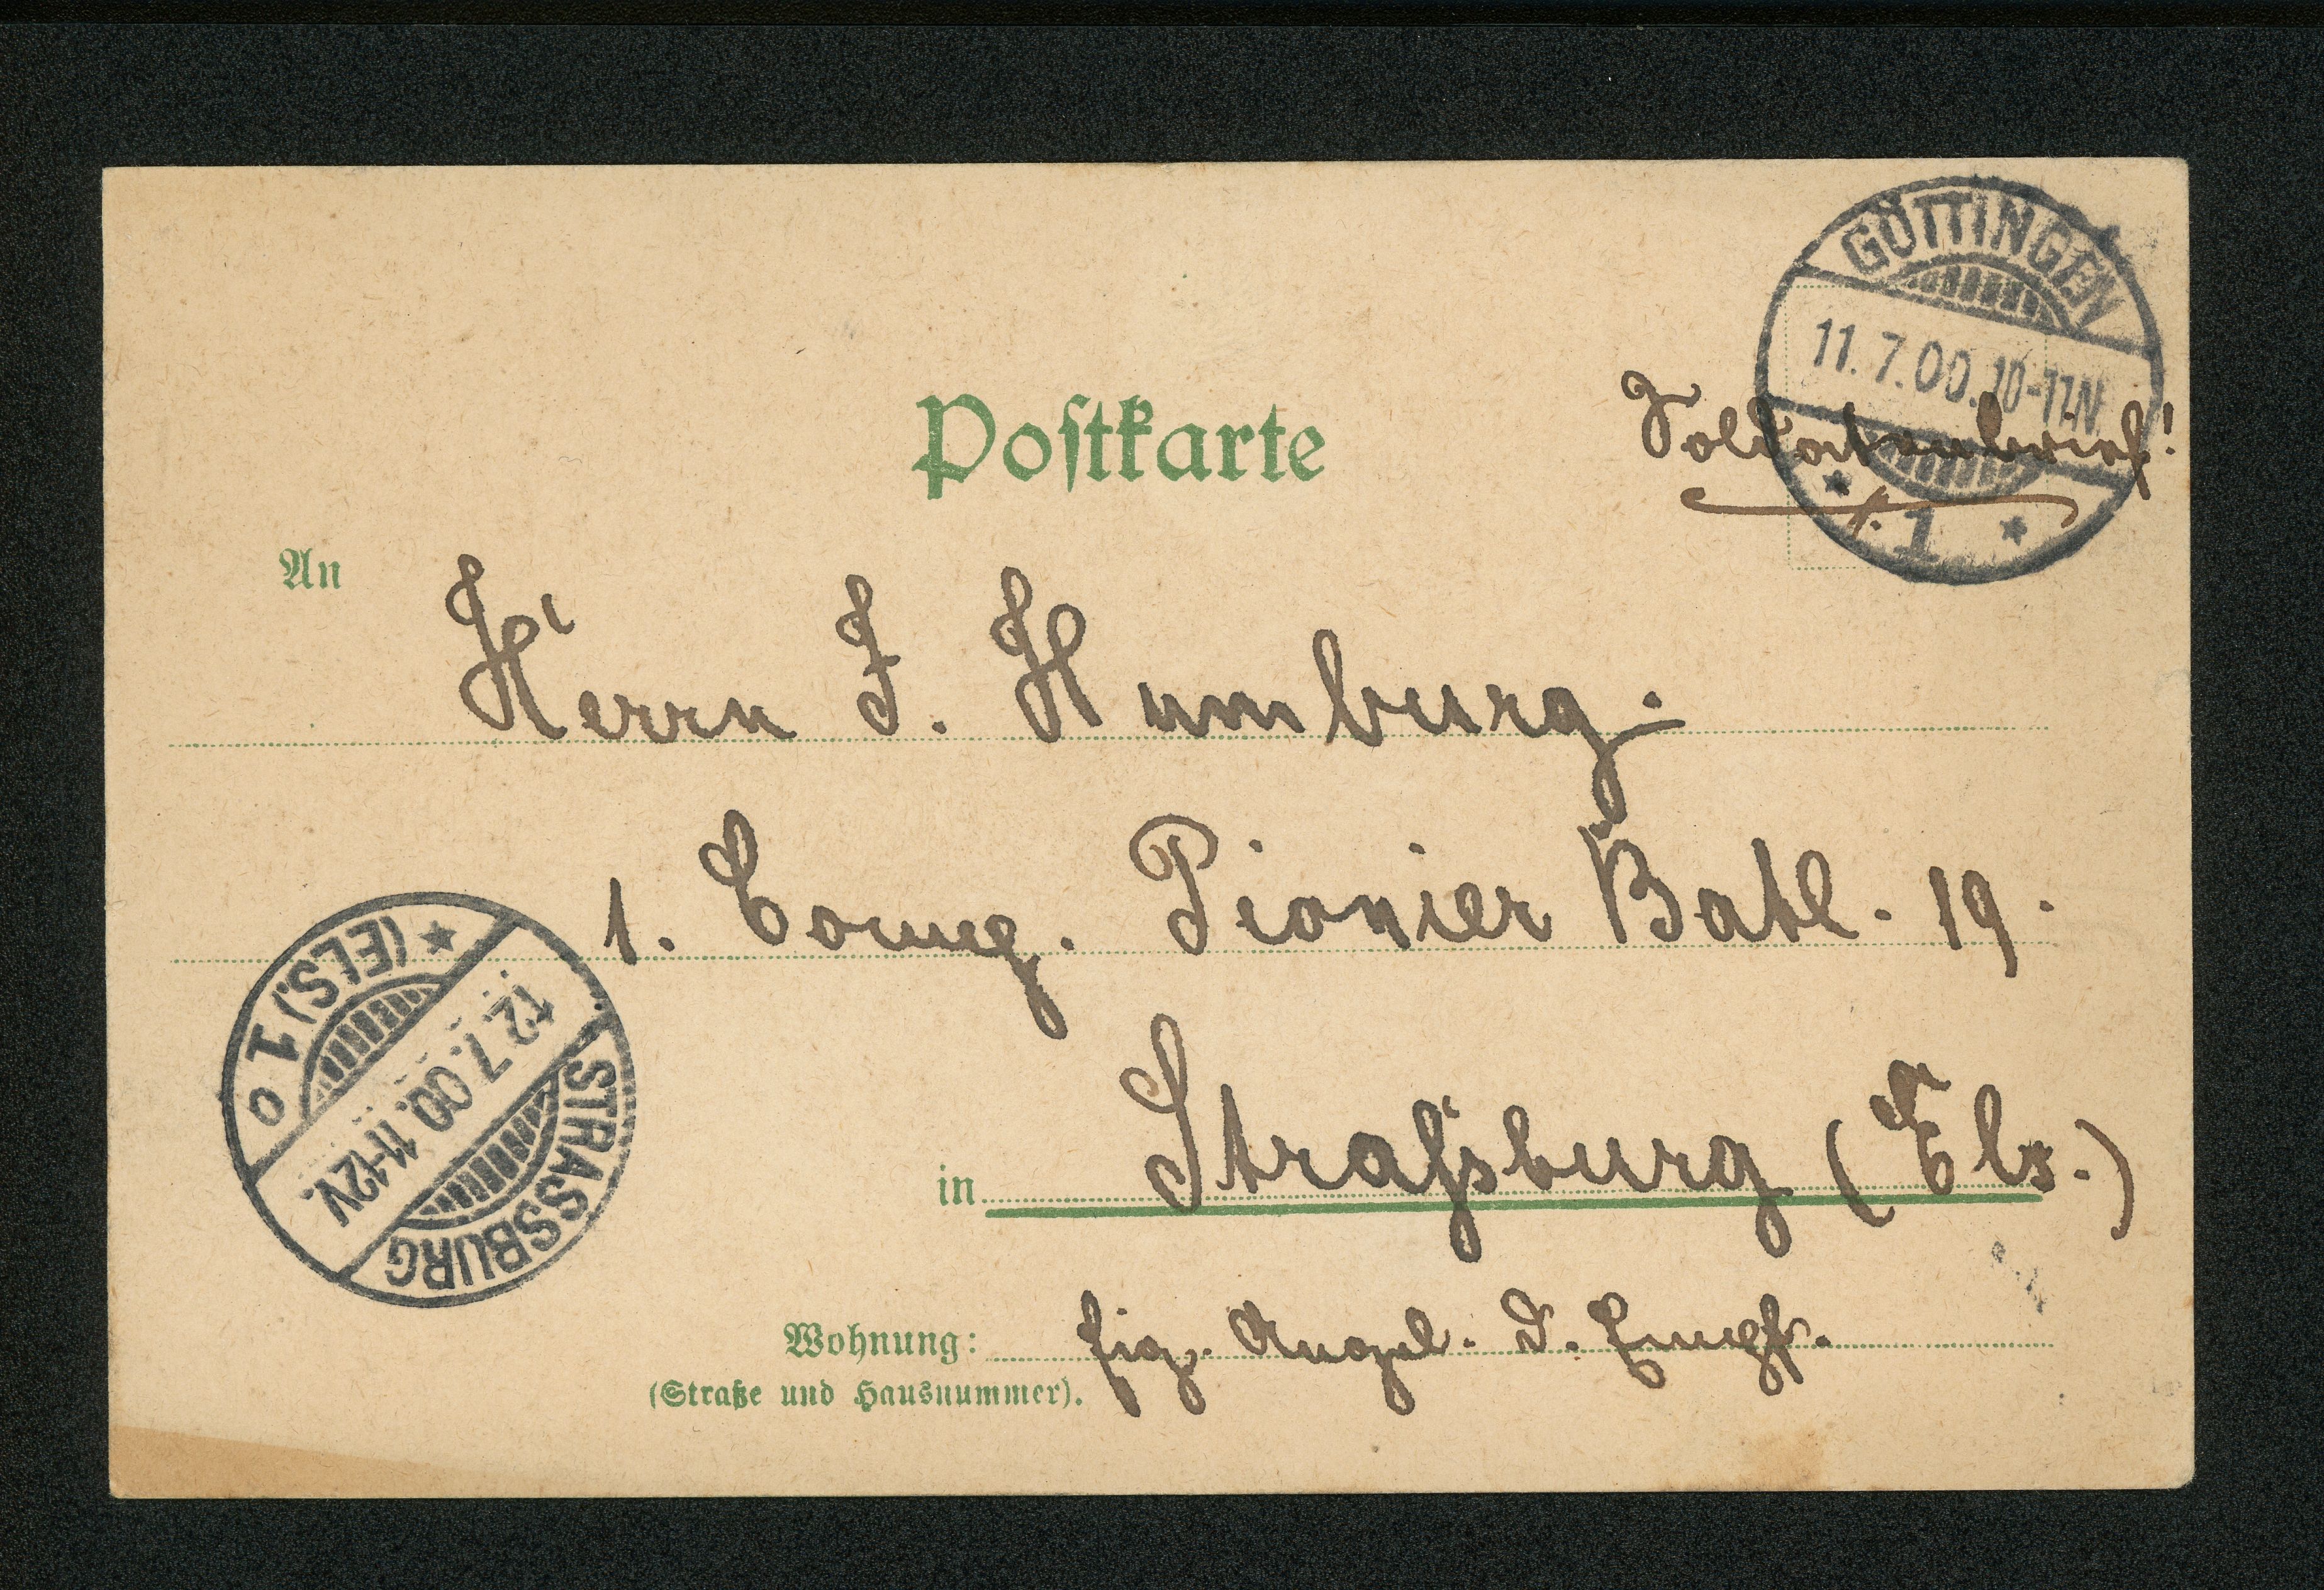 GÖTTINGEN
11.7.00.10-11N
* 1. *
Postkarte
Soldatenbrief!
An
Herrn J. Humburg.
1. Comp. Pionier Batl. 19.
in Straßburg (Els.)
Wohnung: Eig. Angel. d. Empf.
(Straße und Hausnummer).
STRASSBURG
12.7.00.11-12V.
* (ELS.) 1 o